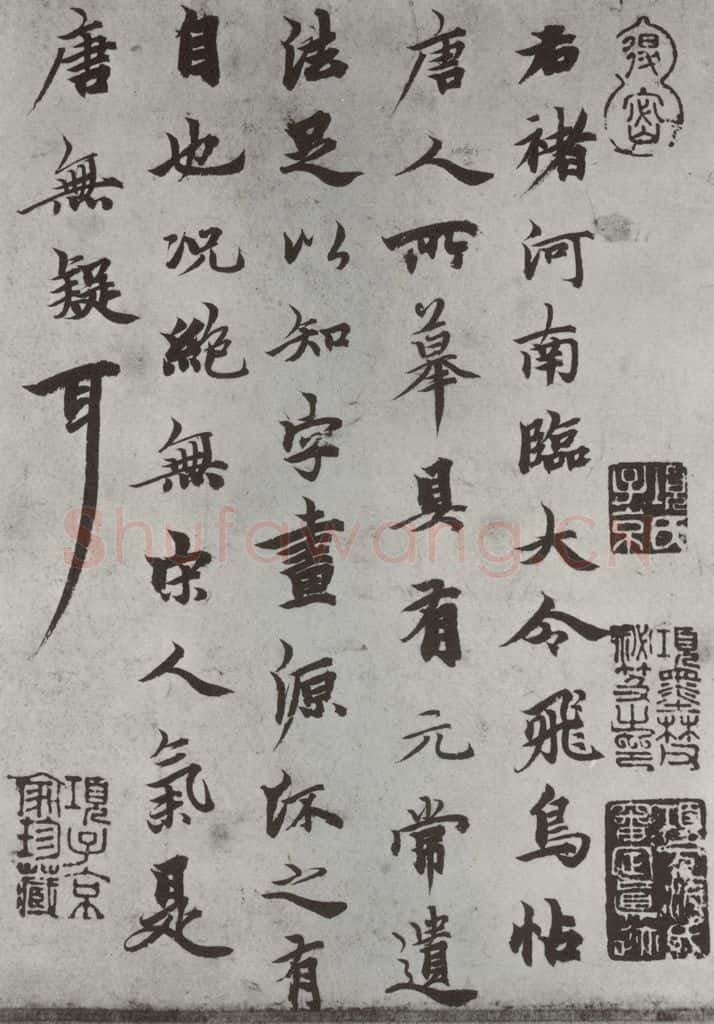 得密
右褚河南臨大令飛鳥帖
唐人所摹具有元常遺
法足以知字畫源之有
自也況絶無宋人氣是
唐無疑耳
項氏子京
項墨林父祕笈之印
項元汴氏審定真跡
項子京家珍藏
Shufawang.CN